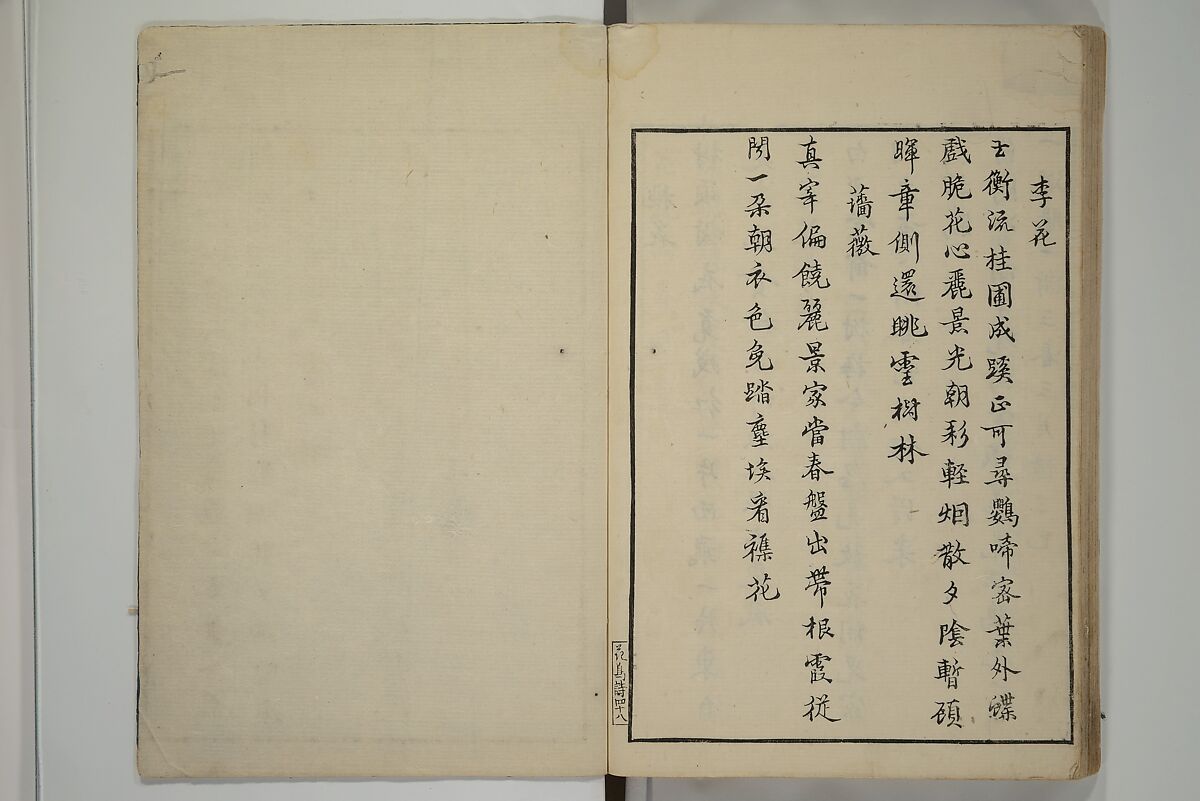 李花
玉衡流桂圃成蹊正可尋鸚啼密葉外蝶
戯脆花心麗景光朝彩軽烟散夕陰暫顧
暉章側還眺霊樹林
薔薇
真宰偏饒麗景家當春盤出帯根霞従
開一朶朝衣色免踏塵埃看襍花
花鳥詩四十八